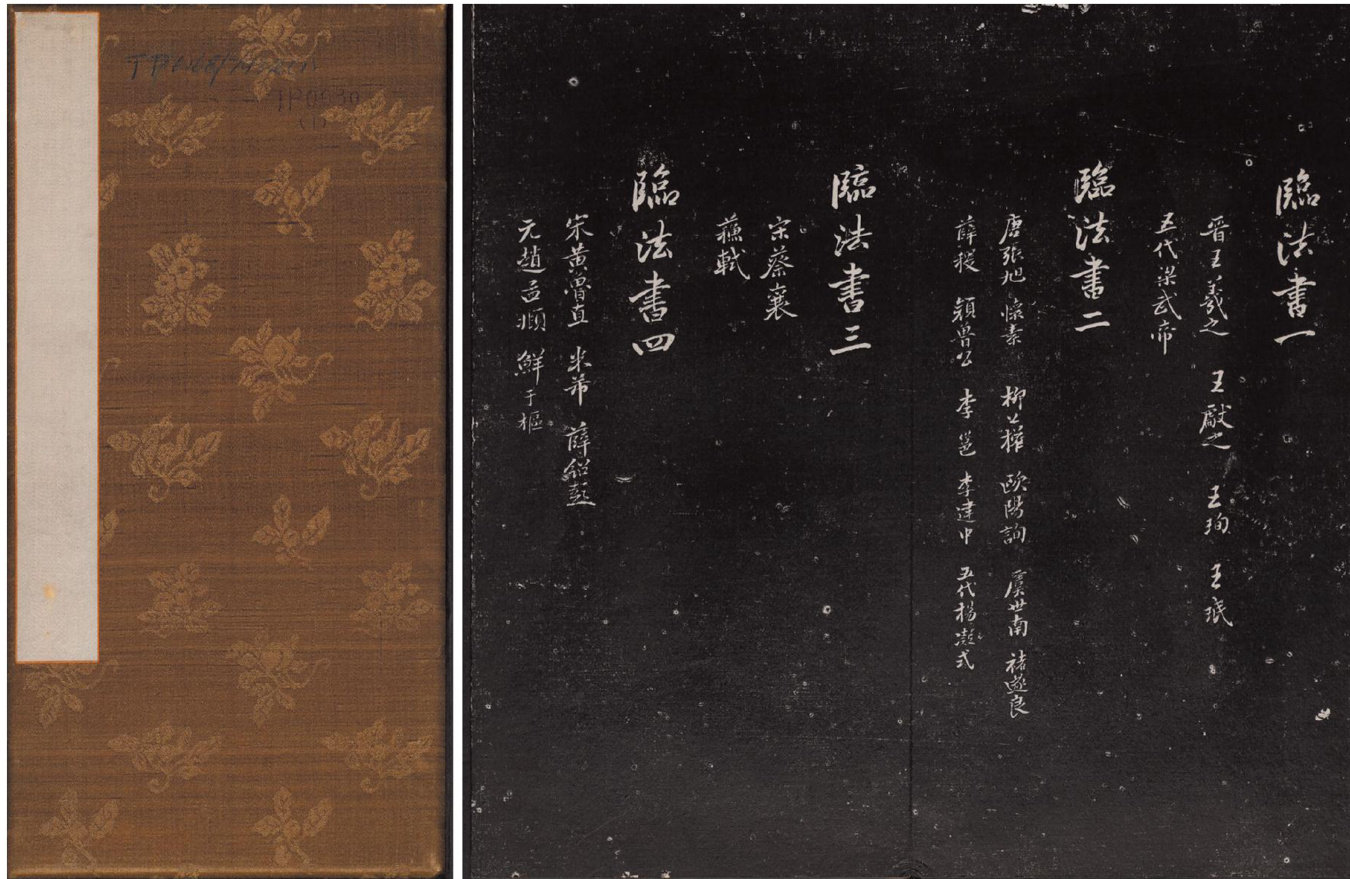 TP0930
(1)
臨法書一
晋王羲之 王獻之 王珣 王珉
五代梁武帝
臨法書二
唐張旭 懷素 柳公權 歐陽詢 虞世南 褚遂良
薛稷 顏魯公 李邕 李建中 五代楊凝式
臨法書三
宋蔡襄
蘇軾
臨法書四
宋黄魯直 米芾 薛紹彭
元趙孟頫 鮮于樞